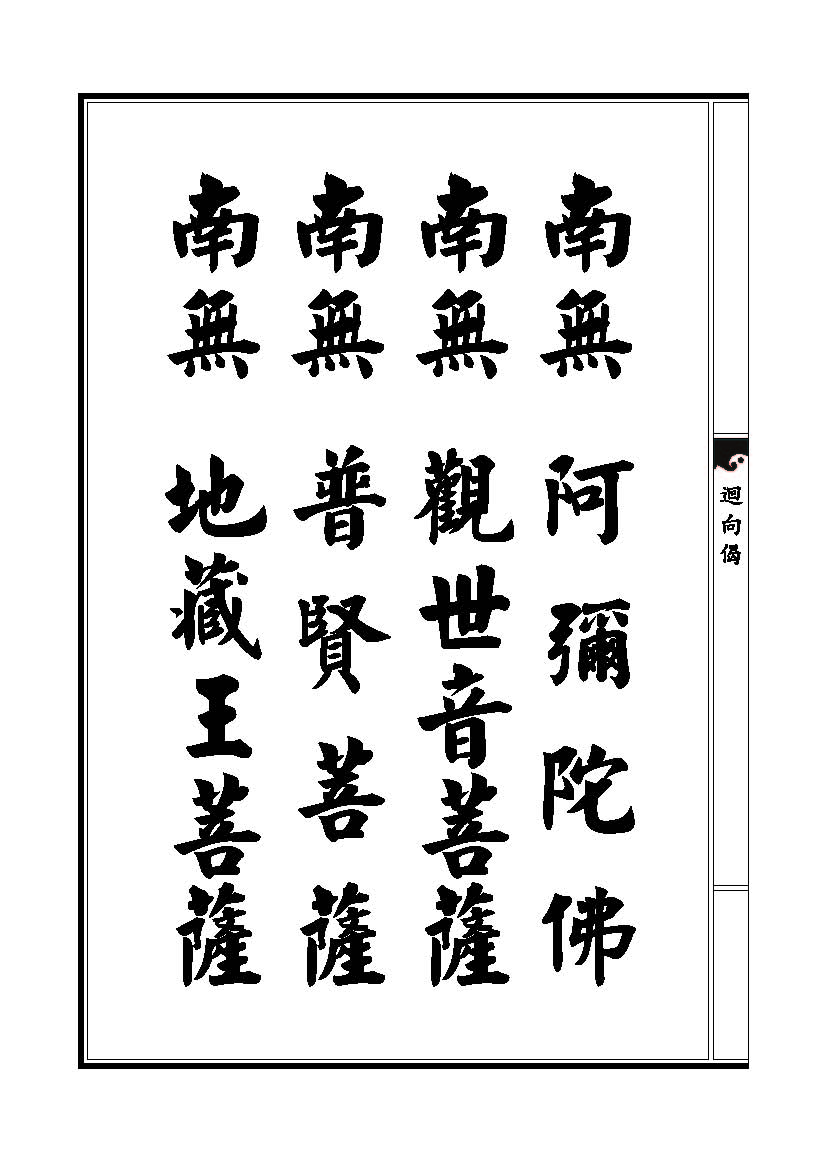 迴向偈
南無 阿彌陀佛
南無 觀世音菩薩
南無 普賢菩薩
南無 地藏王菩薩